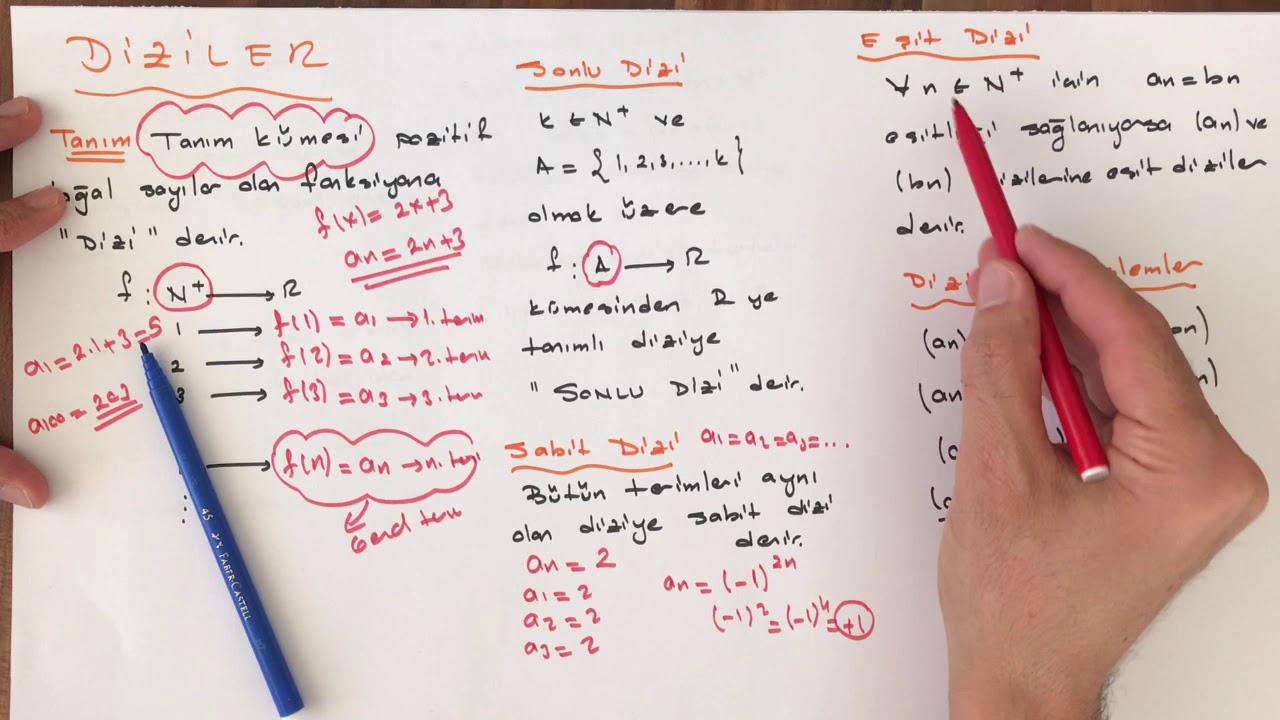 DİZİLER
Tanım Tanım kümesi pozitif
doğal sayılar olan fonksiyona
"Dizi" denir.
f(x) = 2x+3
an = 2n+3
f : N⁺ → R
1 → f(1) = a₁ → 1. terim
2 → f(2) = a₂ → 2. terim
3 → f(3) = a₃ → 3. terim
a₁ = 2.1+3 = 5
a₁₀₀ = 203
f(n) = an → n. terim
Genel terim
Sonlu Dizi
k ∈ N⁺ ve
A = {1, 2, 3, ..., k}
olmak üzere
f : A → R
kümesinden R ye
tanımlı diziye
"SONLU DİZİ" denir.
Sabit Dizi a₁ = a₂ = a₃ = ...
Bütün terimleri aynı
olan diziye sabit dizi
denir.
an = 2
a₁ = 2
a₂ = 2
a₃ = 2
an = (-1)²ⁿ
(-1)² = (-1)⁴ = +1
Eşit Dizi
∀ n ∈ N⁺ için an = bn
eşitliği sağlanıyorsa (an) ve
(bn) dizilerine eşit diziler
denir.
(an)
(an
45 FABER-CASTELL